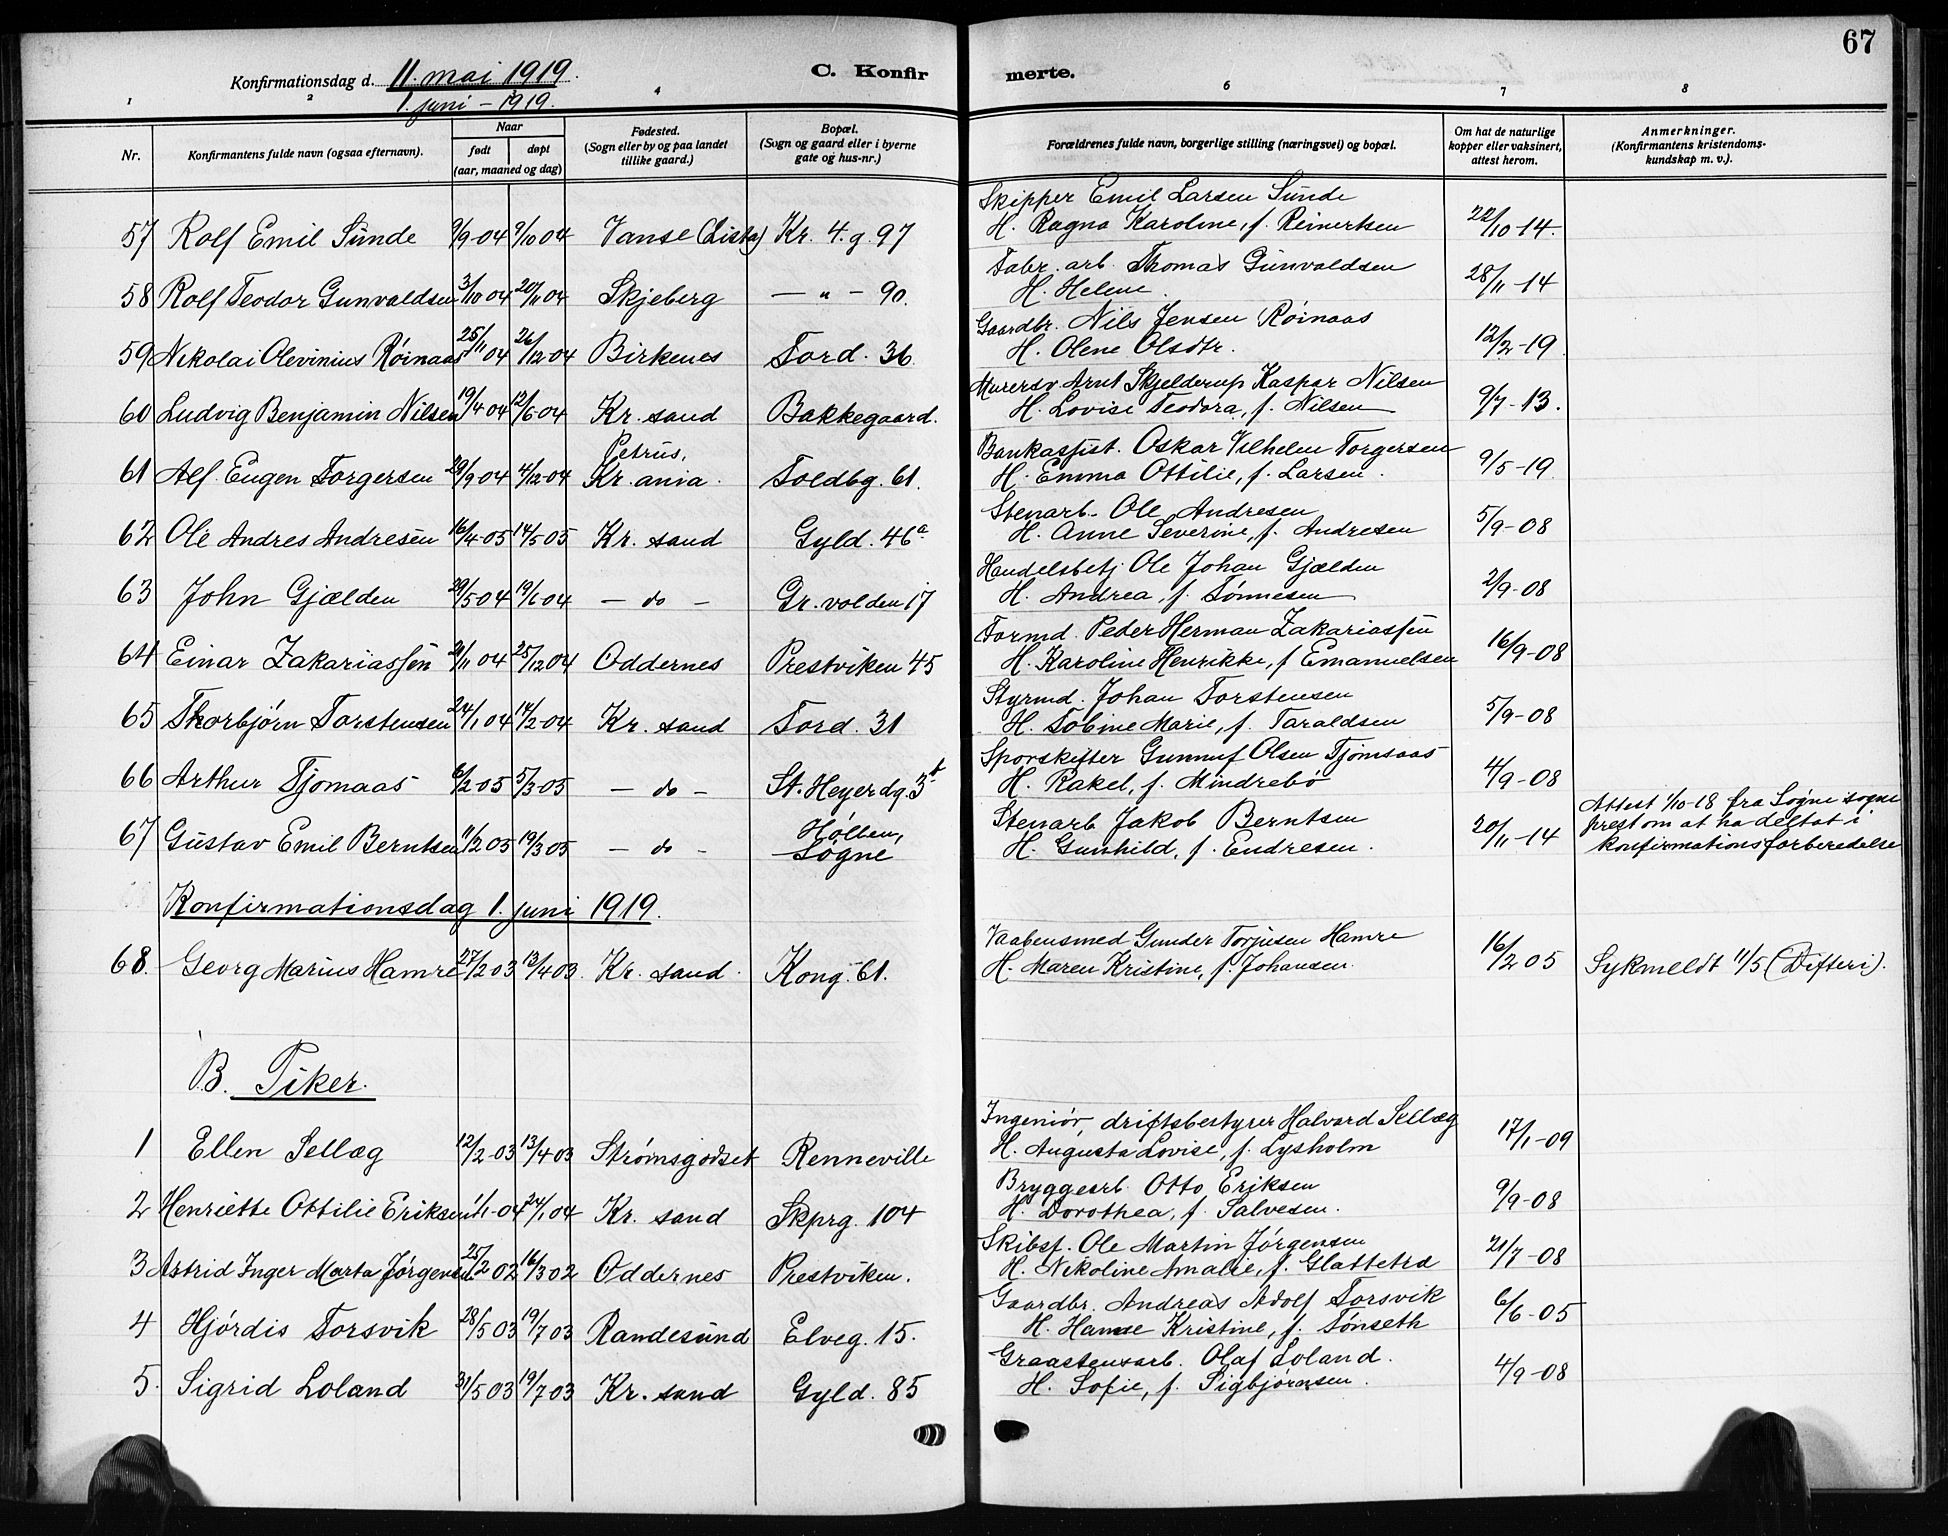 67
Konfirmationsdag d. 11. mai 1919.
1. juni - 1919.
C. Konfirmerte.
1 2 3 4 6 7 8
Nr. Konfirmantens fulde navn (ogsaa efternavn). Naar født døpt (aar, maaned og dag) Fødested. (Sogn eller by og paa landet tillike gaard.) Bopæl. (Sogn og gaard eller i byerne gate og hus-nr.) Forældrenes fulde navn, borgerlige stilling (næringsvei) og bopæl. Om hat de naturlige kopper eller vaksinert, attest herom. Anmerkninger. (Konfirmantens kristendomskundskap m. v.).
57 Rolf Emil Sunde 9/9-04 9/10 04 Vanse (Lista) Kr. 4. g. 97 Skipper Emil Larsen Sunde
H. Ragna Karoline, f. Reinertsen 22/10-14.
58 Rolf Teodor Gunvaldsen 3/10 04 20/11 04 Skjeberg — " — 90. Fabr. arb. Thomas Gunvaldsen
H. Helene. 28/11-14
59 Nikolai Olevinius Røinaas 25/11 04 26/12-04 Birkenes Tord. 36. Gaardbr. Nils Jensen Røinaas
H. Olene Olsdtr. 12/2-19
60 Ludvig Benjamin Nilsen 19/4 04 12/6-04 Kr. sand Bakkegaard. Murersv. Arnt Skjelderup Kaspar Nilsen
H. Lovise Teodora, f. Nilsen 9/7-13.
61 Alf Eugen Torgersen 29/9 04 4/12-04 Petrus, Kr. ania. Toldbg. 61. Bankassist. Oskar Vilhelm Torgersen
H. Emma Ottilie, f. Larsen. 9/5-19
62 Ole Andres Andresen 16/4-05 14/5 05 Kr. sand Gyld. 46a Stenarb. Ole Andresen
H. Anne Severine, f. Andresen 5/9-08
63 John Gjælden 29/5 04 19/6 04 — do — Gr. volden 17 Handelsbetj. Ole Johan Gjælden
H. Andrea, f. Tønnesen 2/9-08
64 Einar Zakariassen 21/11 04 25/12 04 Oddernes Prestviken 45 Formd. Peder Herman Zakariassen
H. Karoline Henrikke, f. Emanuelsen 16/9-08
65 Thorbjørn Torstensen 24/1 04 14/2-04 Kr. sand Tord. 31 Styrmd. Johan Torstensen
H. Tobine Marie, f. Taraldsen 5/9-08
66 Arthur Tjomaas 6/2 05 5/3-05 — do — St. Heyerdg. 3b Sporskifter Gunnuf Olsen Tjomsaas
H. Rakel, f. Mindrebø 4/9-08
67 Gustav Emil Berntsen 11/2 05 19/3 05 — do — Høllen, Søgne Stenarb. Jakob Berntsen
H. Gunhild, f. Endresen. 20/11-14 Attest 1/10-18 fra Søgne sogneprest om at ha deltat i konfirmationsforberedelse
Konfirmationsdag 1. juni 1919.
68. Georg Marius Hamre 27/2 03 13/4 03. Kr. sand. Kong. 61. Vaabensmed Gunder Torjusen Hamre
H. Maren Kristine, f. Johansen. 16/2 05 Sykmeldt 11/5 (Difteri).
B. Piker.
1 Ellen Sellæg 12/2-03 13/4 03 Strømsgodset Renneville Ingeniør, driftsbestyrer Halvard Sellæg
H. Augusta Lovise, f. Lysholm 17/1-09
2 Henriette Ottilie Eriksen 1/1-04 24/1 04 Kr. sand Skprg. 104 Bryggearb. Otto Eriksen
H. Dorothea, f. Salvesen. 9/9-08
3 Astrid Inger Marta Jørgensen 25/2 02 16/3 02 Oddernes Prestviken. Skibsf. Ole Martin Jørgensen
H. Nikoline Amalie, f. Glattetrd 21/7-08
4 Hjørdis Torsvik 28/5 03 19/7 03 Randesund Elveg. 15. Gaardbr. Andreas Adolf Torsvik
H. Hanne Kristine, f. Tønseth 6/6-05
5. Sigrid Loland 31/5 03 19/7 03 Kr. sand Gyld. 85 Graastensarb. Olaf Loland.
H. Sofie, f. Sigbjørnsen. 4/9-08